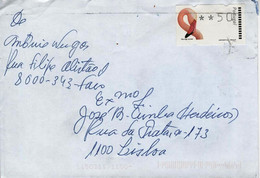 De
António
Rua Filipe Alistão
8000-343-Faro
Exmo S
José B. Cunha
Rua da Prata-173
1100 Lisboa
**50